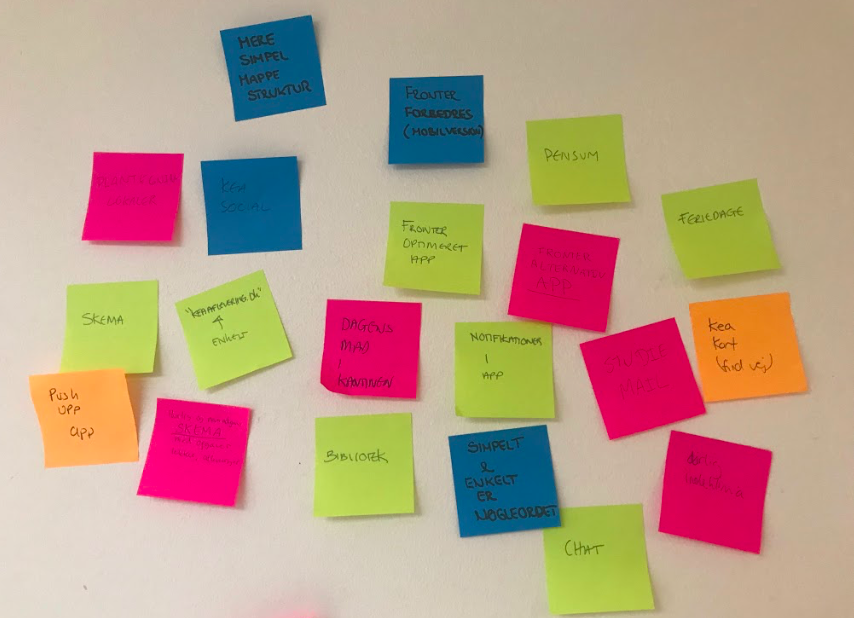 MERE
SIMPEL
MAPPE
STRUKTUR
FRONTER
FORBEDRES
(MOBILVERSION)
PENSUM
KEA
SOCIAL
FERIEDAGE
FRONTER
OPTIMERET
APP
FRONTER
APP
SKEMA
"KEAAFLEVERING.DK"
ENKELT
DAGENS
MAD
I
KANTINEN
NOTIFIKATIONER
I
APP
STUDIE
MAIL
Kea
Kort
(find vej)
Push
UPP
app
SKEMA
BIBLIOTEK
SIMPELT
&
ENKELT
ER
NØGLEORDET
CHAT